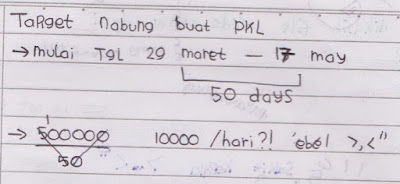 Target nabung buat PKL
→ mulai TGL 29 maret — 17 may
50 days
→ 500000 10000 /hari?! 'ebel >,<"
50